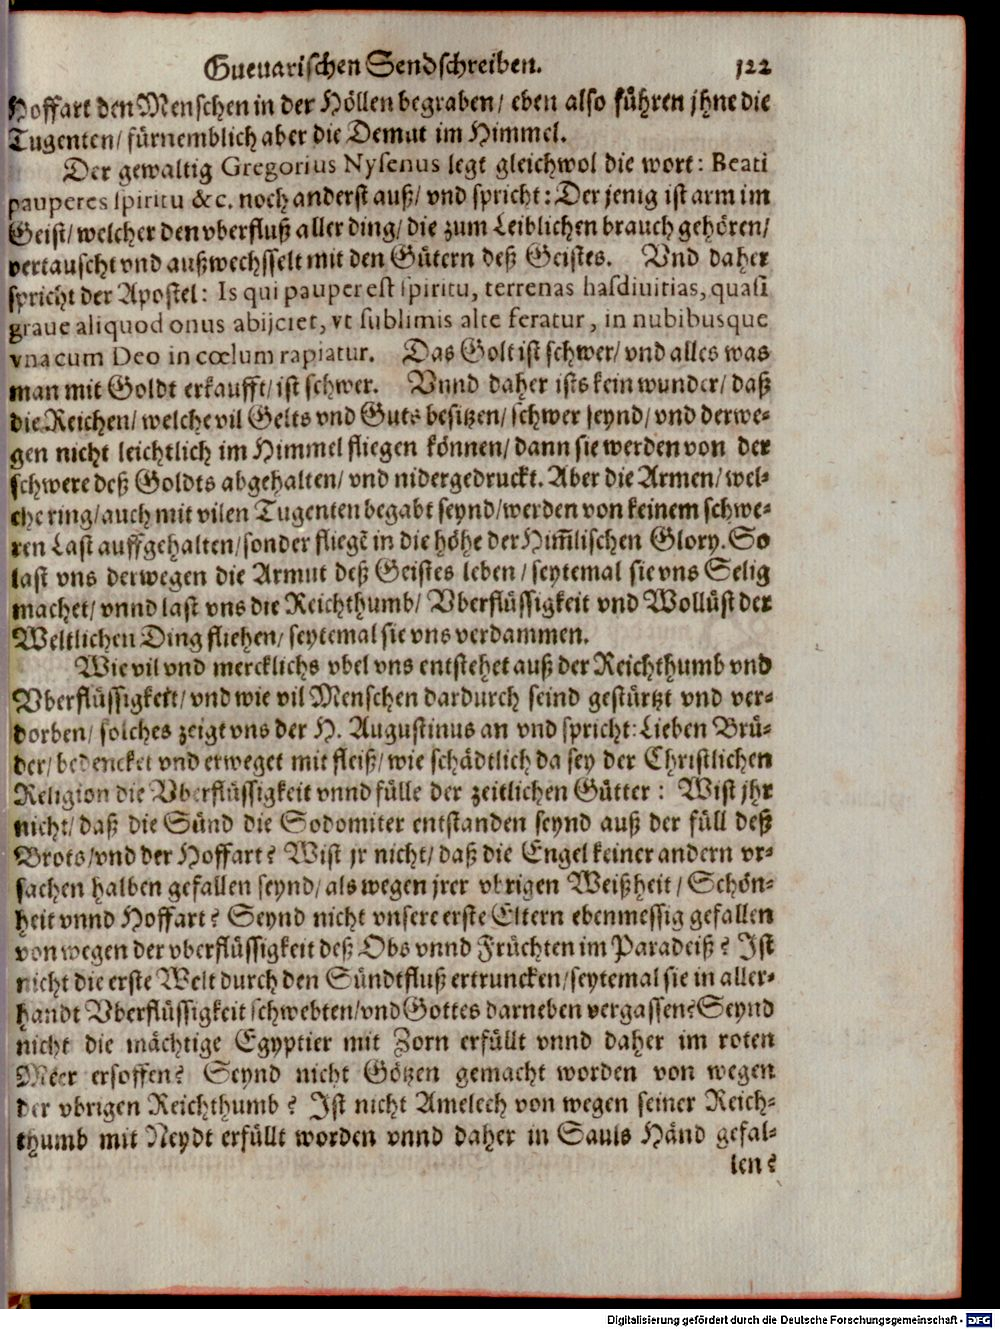 Gueuarischen Sendschreiben. 122
Hoffart den Menschen in der Höllen begraben/ eben also führen jhne die
Tugenten/ fürnemblich aber die Demut im Himmel.
Der gewaltig Gregorius Nysenus legt gleichwol die wort: Beati
pauperes spiritu &c. noch anderst auß/ vnd spricht: Der jenig ist arm im
Geist/ welcher den vberfluß aller ding/ die zum Leiblichen brauch gehören/
vertauscht vnd außwechsselt mit den Gütern deß Geistes. Vnd daher
spricht der Apostel: Is qui pauper est spiritu, terrenas has diuitias, quasi
graue aliquod onus abijciet, vt sublimis alte feratur, in nubibusque
vna cum Deo in cœlum rapiatur. Das Golt ist schwer/ vnd alles was
man mit Goldt erkaufft/ ist schwer. Vnnd daher ists kein wunder/ daß
die Reichen/ welche vil Gelts vnd Guts besitzen/ schwer seynd/ vnd derwe-
gen nicht leichtlich im Himmel fliegen können/ dann sie werden von der
schwere deß Goldts abgehalten/ vnd nidergedruckt. Aber die Armen/ wel-
che ring/ auch mit vilen Tugenten begabt seynd/ werden von keinem schwe-
ren Last auffgehalten/ sonder fliegẽ in die höhe der Him̃lischen Glory. So
last vns derwegen die Armut deß Geistes leben/ seytemal sie vns Selig
machet/ vnnd last vns die Reichthumb/ Vberflüssigkeit vnd Wollüst der
Weltlichen Ding fliehen/ seytemal sie vns verdammen.
Wie vil vnd mercklichs vbel vns entstehet auß der Reichthumb vnd
Vberflüssigkeit/ vnd wie vil Menschen dardurch seind gestürtzt vnd ver-
dorben/ solches zeigt vns der H. Augustinus an vnd spricht: Lieben Brü-
der/ bedencket vnd erweget mit fleiß/ wie schädtlich da sey der Christlichen
Religion die Vberflüssigkeit vnnd fülle der zeitlichen Gütter: Wist jhr
nicht/ daß die Sünd die Sodomiter entstanden seynd auß der füll deß
Brots/ vnd der Hoffart? Wist jr nicht/ daß die Engel keiner andern vr-
sachen halben gefallen seynd/ als wegen jrer vbrigen Weißheit/ Schön-
heit vnnd Hoffart? Seynd nicht vnsere erste Eltern ebenmessig gefallen
von wegen der vberflüssigkeit deß Obs vnnd Früchten im Paradeiß? Ist
nicht die erste Welt durch den Sündtfluß ertruncken/ seytemal sie in aller-
handt Vberflüssigkeit schwebten/ vnd Gottes darneben vergassen? Seynd
nicht die mächtige Egyptier mit Zorn erfüllt vnnd daher im roten
Meer ersoffen? Seynd nicht Götzen gemacht worden von wegen
der vbrigen Reichthumb? Ist nicht Amelech von wegen seiner Reich-
thumb mit Neydt erfüllt worden vnnd daher in Sauls Händ gefal-
len?
Digitalisierung gefördert durch die Deutsche Forschungsgemeinschaft - DFG